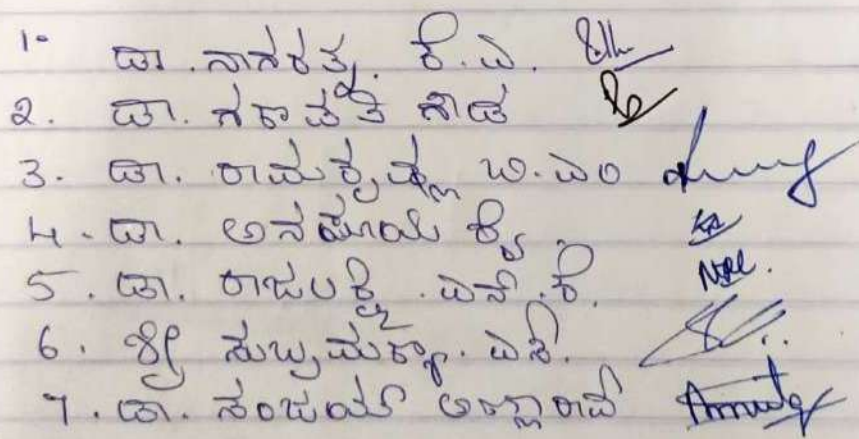 1. ಡಾ. ನಾಗರತ್ನ. ಕೆ.ಎ.
2. ಡಾ. ಗಣಪತಿ ಗೌಡ
3. ಡಾ. ರಾಮಕೃಷ್ಣ ಬಿ.ಎಂ
4. ಡಾ. ಅನಸೂಯ
5. ಡಾ. ರಾಜಲಕ್ಷ್ಮಿ. ಎನ್.ಕೆ.
6. ಶ್ರೀ ಸುಬ್ರಮಣ್ಯ. ಎಸ್.
7. ಡಾ. ಸಂಜಯ್ ಅಣ್ಣಾರಾವ್